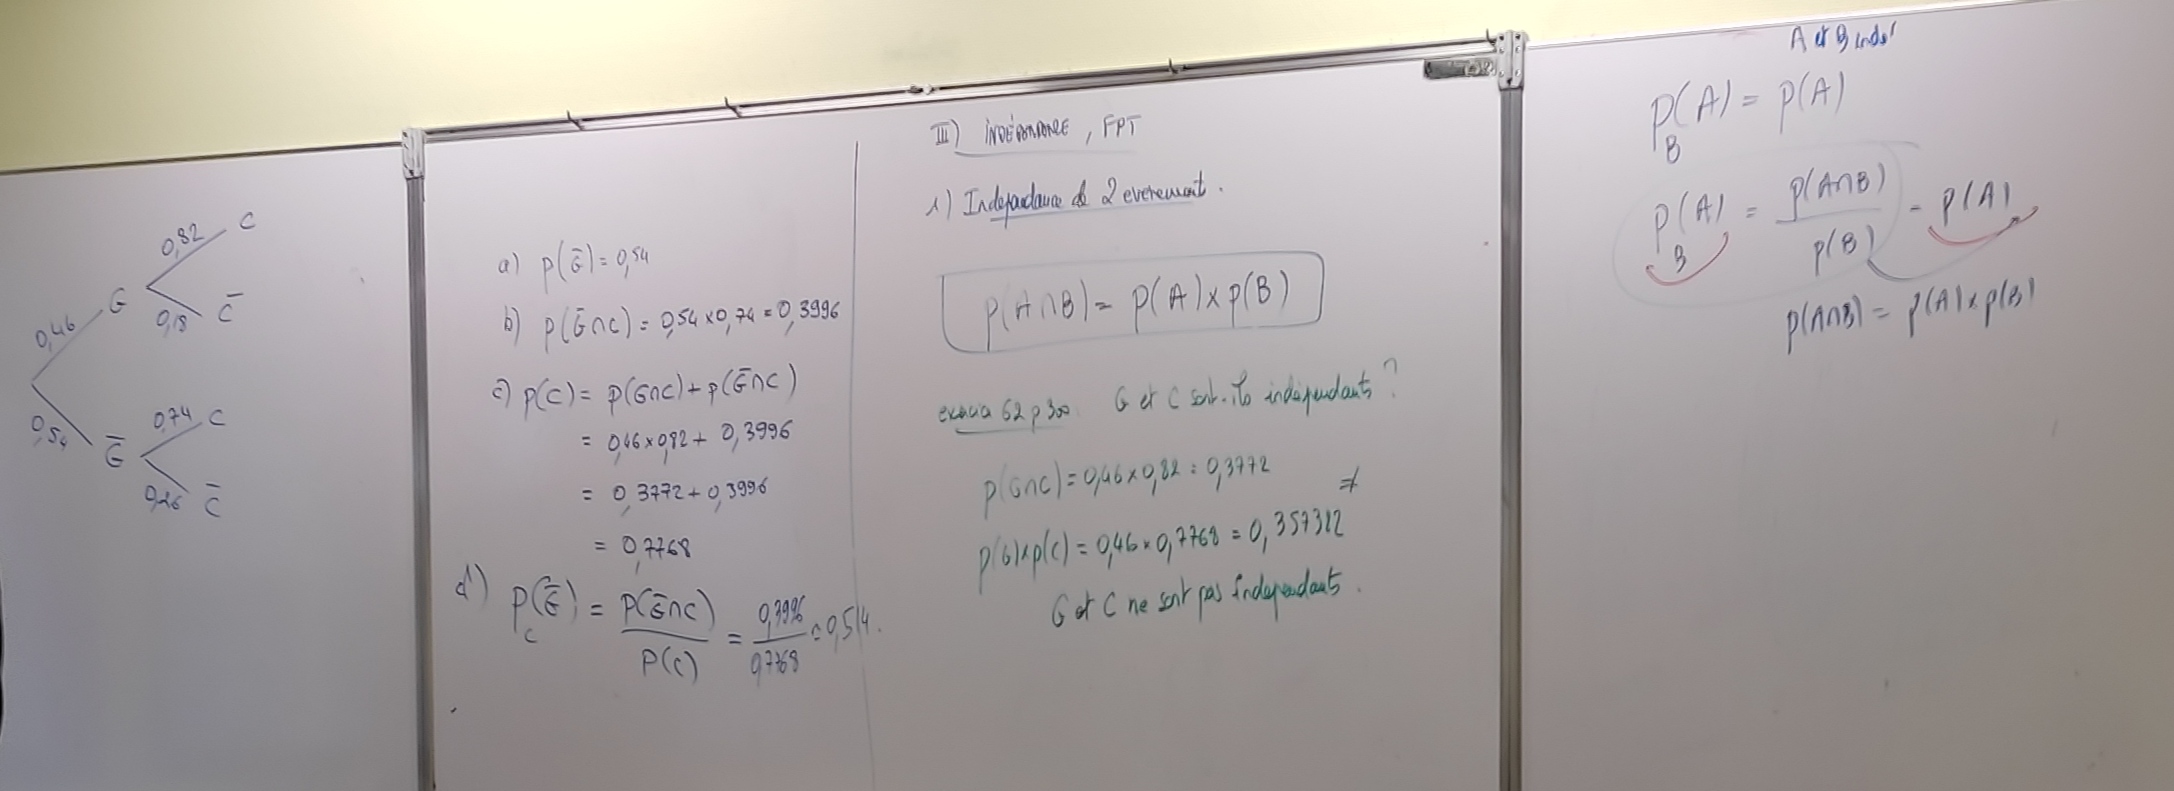 0,82 C
G
0,46 0,18 C̄
0,54 0,74 C
Ḡ
0,26 C̄
a) p(Ḡ) = 0,54
b) p(Ḡ∩C) = 0,54 × 0,74 = 0,3996
c) p(C) = p(G∩C) + p(Ḡ∩C)
= 0,46 × 0,82 + 0,3996
= 0,3772 + 0,3996
= 0,7768
d) P_C(Ḡ) = P(Ḡ∩C) / P(C) = 0,3996 / 0,7768 = 0,514.
III) INDÉPENDANCE, FPT
1) Independance de 2 evenement.
p(A∩B) = p(A) × p(B)
exercice 62 p 300. G et C sont-ils indépendants ?
p(G∩C) = 0,46 × 0,82 = 0,3772 ≠
p(G) × p(C) = 0,46 × 0,7768 = 0,357312
G et C ne sont pas indépendants.
A et B indé
P_B(A) = p(A)
P_B(A) = p(A∩B) / p(B) = p(A)
p(A∩B) = p(A) × p(B)